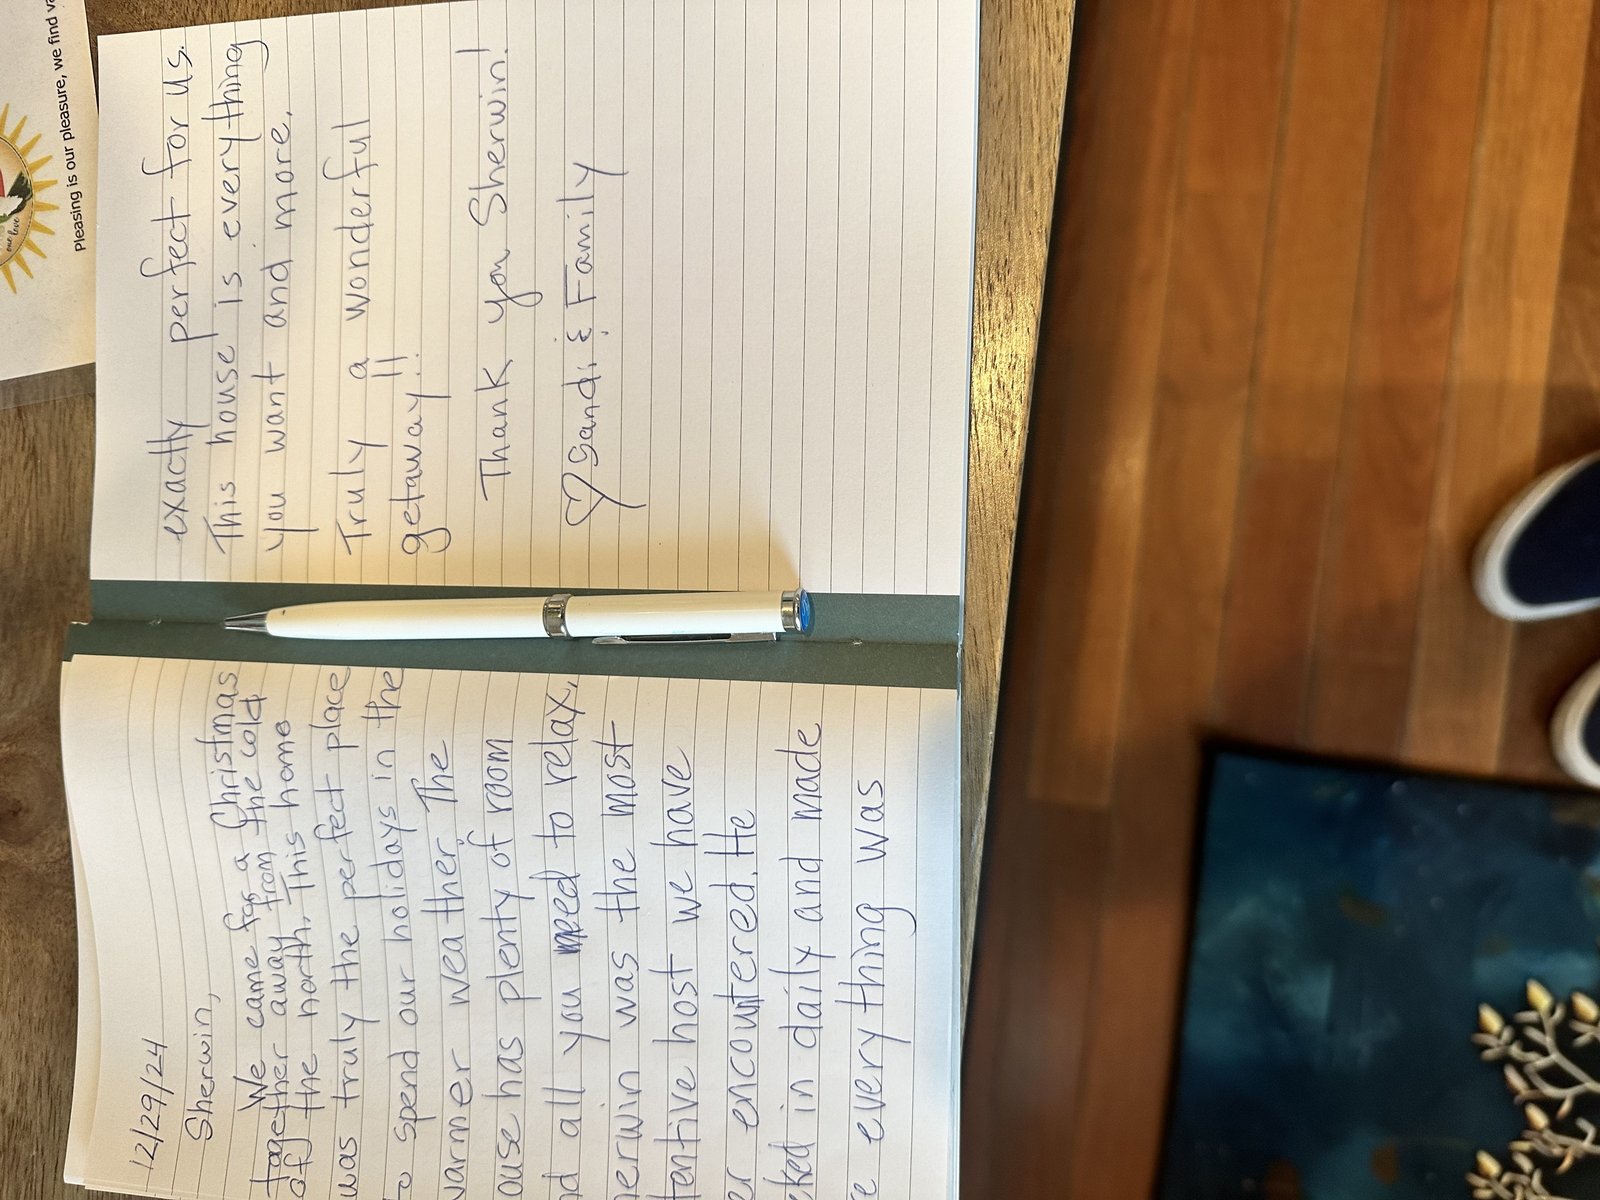 12/29/24
Sherwin,
We came for a Christmas
together away from the cold
of the north. This home
was truly the perfect place
to spend our holidays in the
warmer weather. The
ouse has plenty of room
nd all you need to relax.
herwin was the most
tentive host we have
er encountered. He
cked in daily and made
e everything was
exactly perfect for us.
This house is everything
you want and more.
Truly a wonderful
getaway!!
Thank you Sherwin!
♡ Sandi & Family
one love
Pleasing is our pleasure, we find va